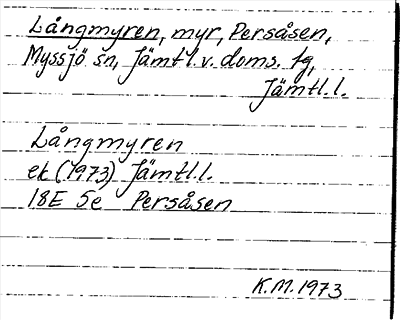 Långmyren, myr, Persåsen,
Myssjö sn, Jämtl.v. doms. tg,
Jämtl.l.
Långmyren
ek (1973) Jämtl.l.
18E 5e Persåsen
K.M. 1973